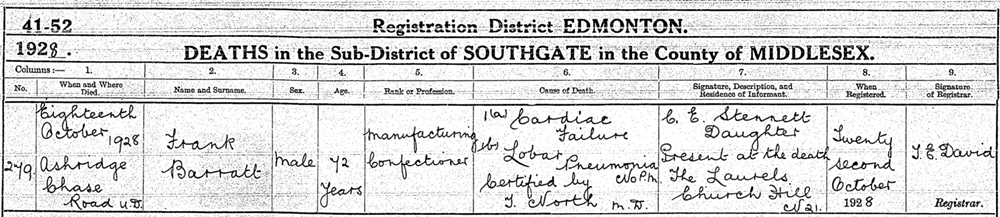 41-52
Registration District EDMONTON.
1928.
DEATHS in the Sub-District of SOUTHGATE in the County of MIDDLESEX.
Columns :— 1. 2. 3. 4. 5. 6. 7. 8. 9.
No. When and Where Died. Name and Surname. Sex. Age. Rank or Profession. Cause of Death. Signature, Description, and Residence of Informant. When Registered. Signature of Registrar.
279.
Eighteenth
October
1928
Ashridge
Chase
Road U.D.
Frank
Barratt
Male
72
Years
Manufacturing
Confectioner
I(a) Cardiac
Failure
(b) Lobar
Pneumonia
No P.M.
Certified by
T. North M.D.
C. E. Stennett
Daughter
Present at the death
The Laurels
Church Hill
N21.
Twenty
second
October
1928
T. E. David
Registrar.